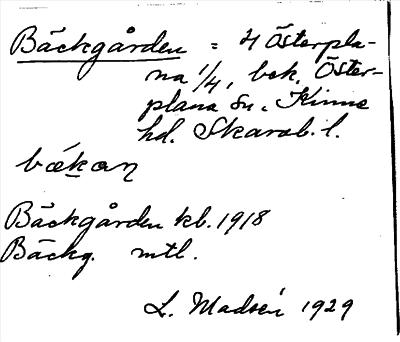 Bäckgården = 4 Österpla-
na 1/4, bek. Öster-
plana sn. Kinne
hd. Skarab. l.
bækan
Bäckgården kb. 1918
Bäckg. mtl.
L. Madsén 1929